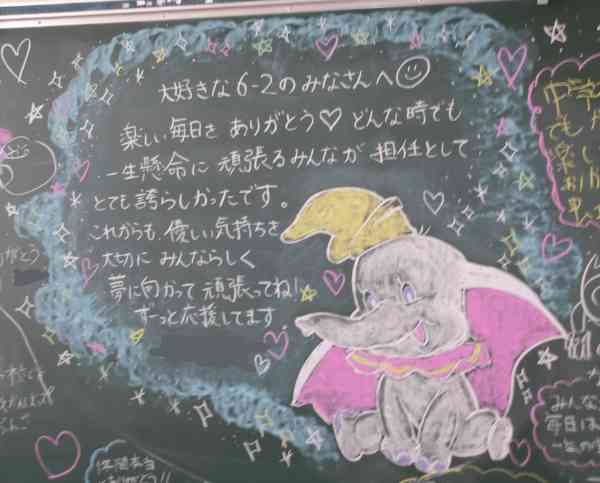 大好きな6-2のみなさんへ
楽しい毎日をありがとう♡ どんな時でも
一生懸命に頑張るみんなが担任として
とても誇らしかったです。
これからも、優しい気持ちを
大切に みんならしく
夢に向かって頑張ってね!
ずーっと応援してます
中学
でも
楽し
みんな
毎日